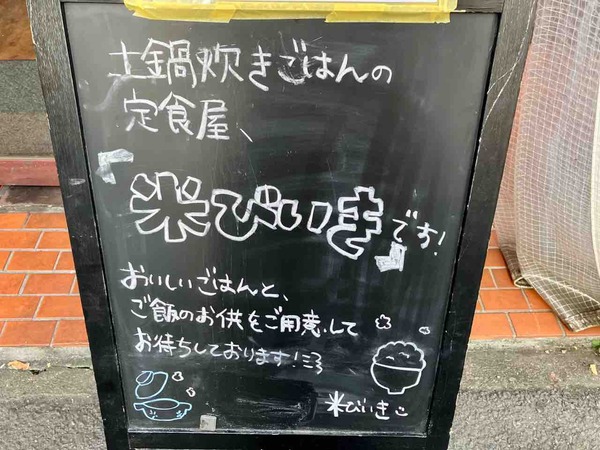 土鍋炊きごはんの
定食屋、
「米びいき」です!
おいしいごはんと、
ご飯のお供をご用意して
お待ちしております!
米びいき